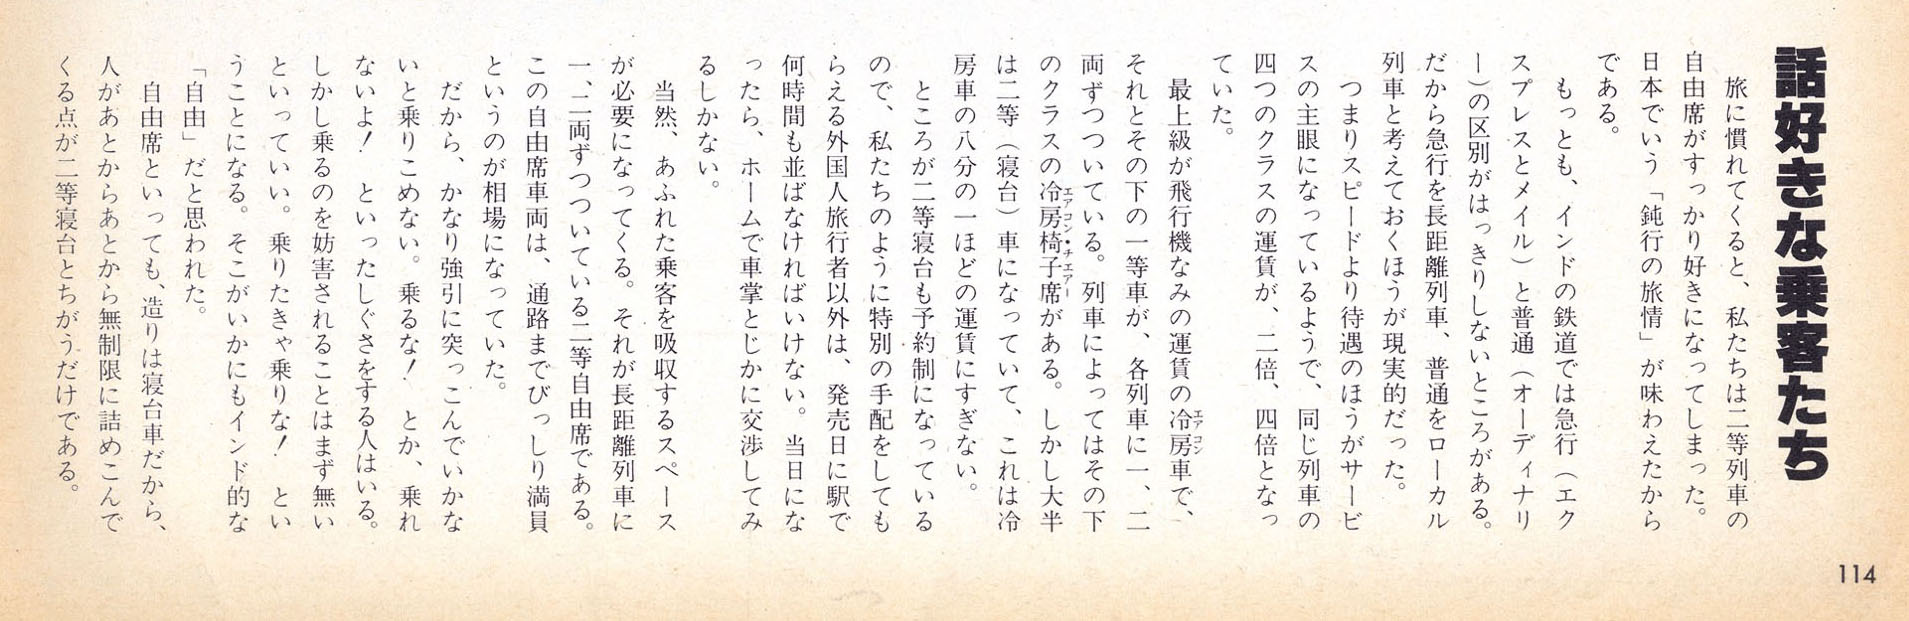 話好きな乗客たち
旅に慣れてくると、私たちは二等列車の
自由席がすっかり好きになってしまった。
日本でいう「鈍行の旅情」が味わえたから
である。
もっとも、インドの鉄道では急行（エク
スプレスとメイル）と普通（オーディナリ
ー）の区別がはっきりしないところがある。
だから急行を長距離列車、普通をローカル
列車と考えておくほうが現実的だった。
つまりスピードより待遇のほうがサービ
スの主眼になっているようで、同じ列車の
四つのクラスの運賃が、二倍、四倍となっ
ていた。
最上級が飛行機なみの運賃の冷房車で、
エアコン
それとその下の一等車が、各列車に一、二
両ずつついている。列車によってはその下
のクラスの冷房椅子席がある。しかし大半
エアコン・チエアー
は二等（寝台）車になっていて、これは冷
房車の八分の一ほどの運賃にすぎない。
ところが二等寝台も予約制になっている
ので、私たちのように特別の手配をしても
らえる外国人旅行者以外は、発売日に駅で
何時間も並ばなければいけない。当日にな
ったら、ホームで車掌とじかに交渉してみ
るしかない。
当然、あふれた乗客を吸収するスペース
が必要になってくる。それが長距離列車に
一、二両ずつついている二等自由席である。
この自由席車両は、通路までびっしり満員
というのが相場になっていた。
だから、かなり強引に突っこんでいかな
いと乗りこめない。乗るな！　とか、乗れ
ないよ！　といったしぐさをする人はいる。
しかし乗るのを妨害されることはまず無い
といっていい。乗りたきゃ乗りな！　とい
うことになる。そこがいかにもインド的な
「自由」だと思われた。
自由席といっても、造りは寝台車だから、
人があとからあとから無制限に詰めこんで
くる点が二等寝台とちがうだけである。
114